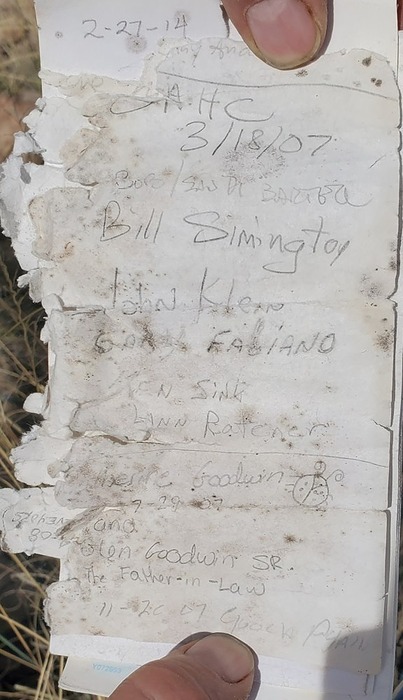 2-27-14
SAHC
3/18/07
BOB/SANDI
Bill Simington
John Klein
GARY FABIANO
KEN Sink
LINN Ratcher
Goodwin
7-29-07
and
Glen Goodwin SR.
The Father-in-Law
11-20 07